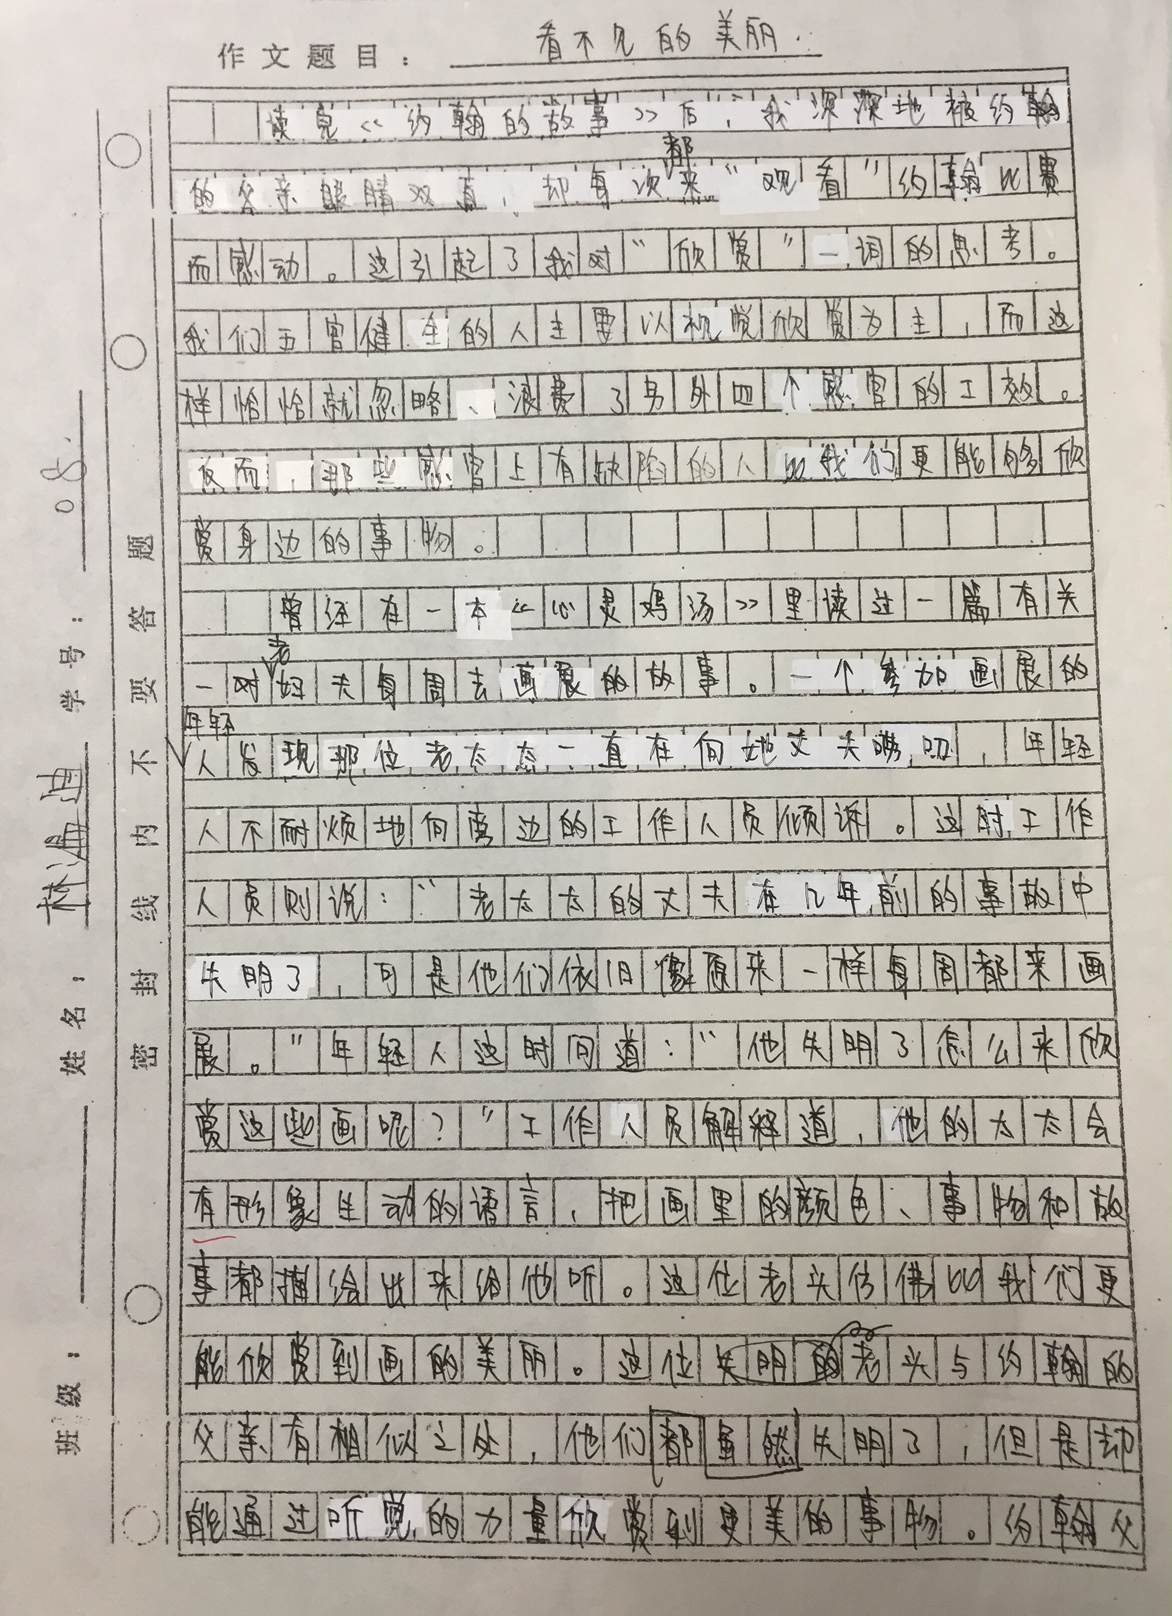 作文题目：看不见的美丽.
读完《约翰的故事》后，我深深地被约翰
都
的父亲眼睛双盲，却每次来“观看”约翰比赛
而感动。这引起了我对“欣赏”一词的思考。
我们五官健全的人主要以视觉欣赏为主，而这
样恰恰就忽略、浪费了另外四个感官的工效。
反而，那些感官上有缺陷的人比我们更能够欣
赏身边的事物。
曾经在一本《心灵鸡汤》里读过一篇有关
老
一对好夫每周去画展的故事。一个参加画展的
年轻
人发现那位老太太一直在向她丈夫唠叨，年轻
人不耐烦地向旁边的工作人员倾诉。这时工作
人员则说：“老太太的丈夫在几年前的事故中
失明了，可是他们依旧像原来一样每周都来画
展。”年轻人这时问道：“他失明了怎么来欣
赏这些画呢？”工作人员解释道，他的太太会
有形象生动的语言，把画里的颜色、事物和故
事都描绘出来给他听。这位老头仿佛比我们更
能欣赏到画的美丽。这位失明的老头与约翰的
父亲有相似之处，他们都虽然失明了，但是却
能通过听觉的力量欣赏到更美的事物。约翰父
班级：
姓名：林海迪
学号：08.
密封线内不要答题